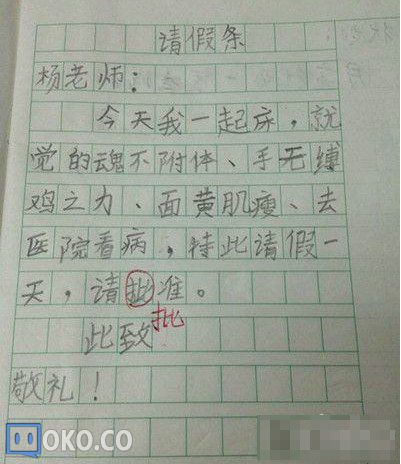 请假条
杨老师：
今天我一起床，就
觉的魂不附体、手无缚
鸡之力、面黄肌瘦、去
医院看病，特此请假一
天，请批准。
批
此致
敬礼！
MOKO.CO